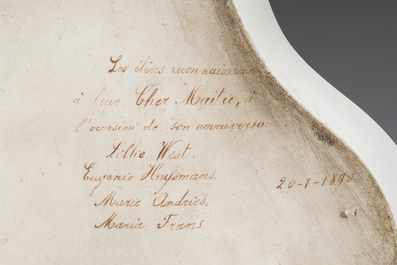 Les élèves reconnaissants
à leur Cher Maître, à
l'occasion de son anniversaire.
West.
Eugenie Huysmans.
20-1-18
Marie Andries.
Maria Frans